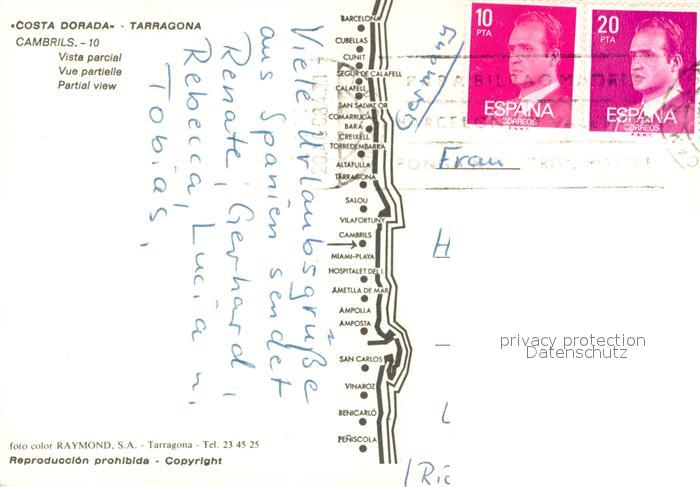 «COSTA DORADA» - TARRAGONA
CAMBRILS. - 10
Vista parcial
Vue partielle
Partial view
Viele Urlaubsgrüße
aus Spanien sendet
Renate, Gerhard,
Rebecca, Lucia u.
Tobias.
BARCELONA
CUBELLAS
CUNIT
SEGUR DE CALAFELL
CALAFELL
SAN SALVADOR
COMARRUGA
BARÁ
CREIXELL
TORREDEMBARRA
ALTAFULLA
TARRAGONA
SALOU
VILAFORTUNY
CAMBRILS
MIAMI-PLAYA
HOSPITALET DEL I.
AMETLLA DE MAR
AMPOLLA
AMPOSTA
SAN CARLOS
VINAROZ
BENICARLÓ
PEÑISCOLA
10
PTA
ESPAÑA
CORREOS
F.N.M.T.
20
PTA
ESPAÑA
CORREOS
F.N.M.T.
Germany
Frau
H
L
privacy protection
Datenschutz
foto color RAYMOND, S.A. - Tarragona - Tel. 23 45 25
Reproducción prohibida - Copyright